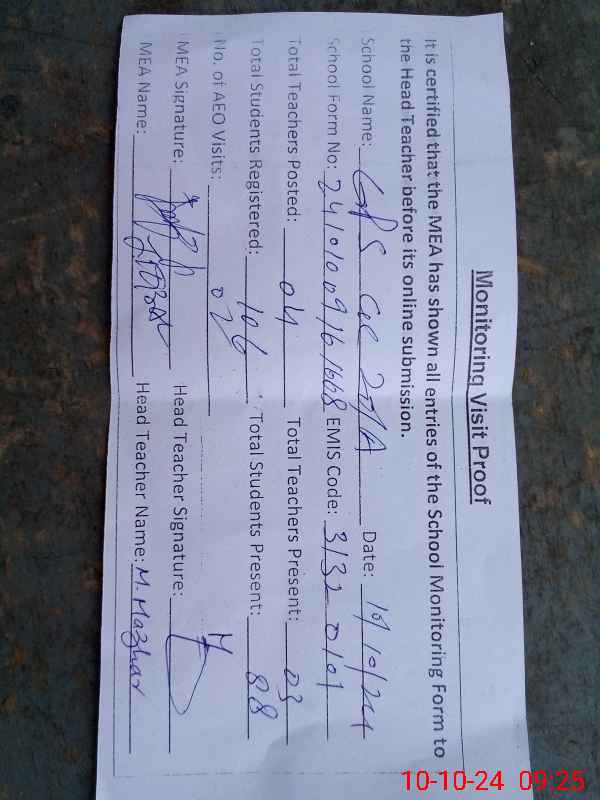 Monitoring Visit Proof
It is certified that the MEA has shown all entries of the School Monitoring Form to
the Head Teacher before its online submission.
School Name: GPS Date: 10/10/24
School Form No: EMIS Code: 31320101
Total Teachers Posted: 04 Total Teachers Present: 03
Total Students Registered: 106 Total Students Present: 88
No. of AEO Visits:
MEA Signature: Head Teacher Signature:
MEA Name: Head Teacher Name: M. Mazhar
10-10-24 09:25